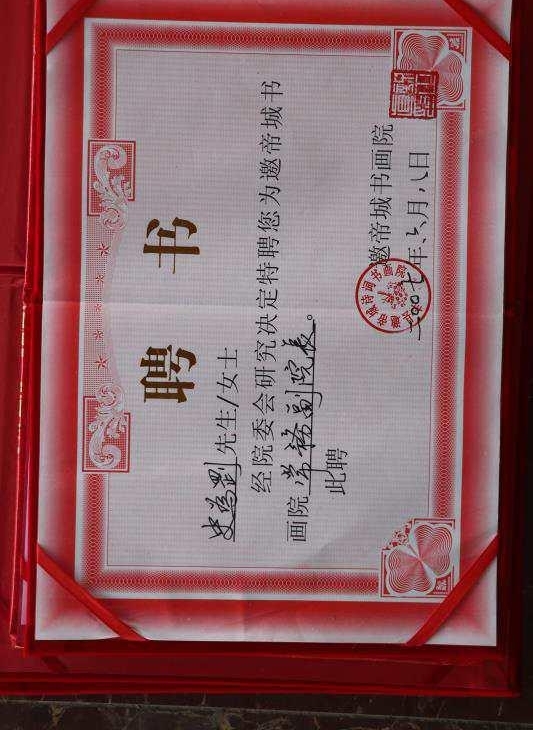 聘书
史为刚先生/女士
经院委会研究决定特聘您为邀帝城书
画院常务副院长。
此聘
邀帝城书画院
二00七年六月八日